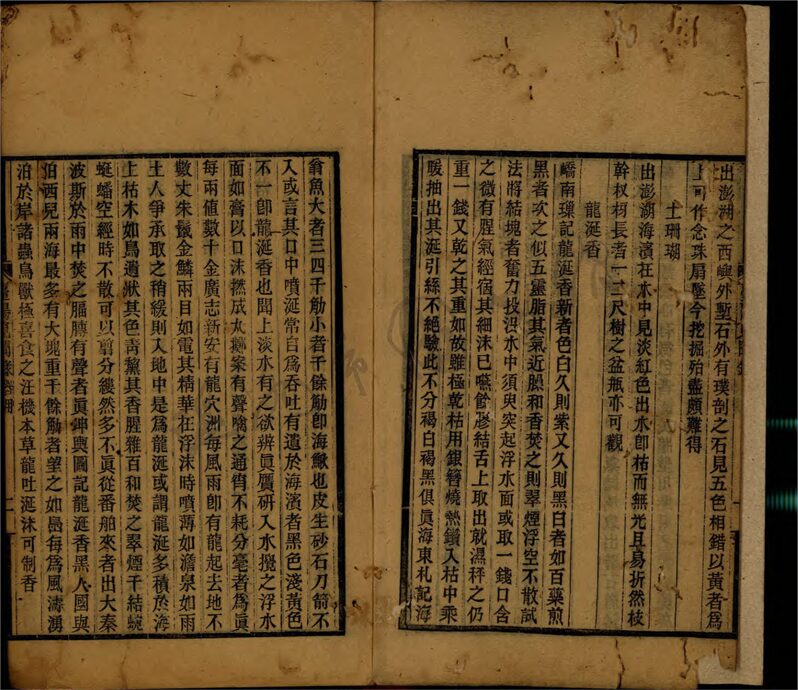 出澎湖之西嶼外塹石外有璞剖之石見五色相錯以黃者為
上可作念珠扇墜今挖掘殆盡頗難得
土珊瑚
出澎湖海濱在水中見淡紅色出水卽枯而無光且易折然枝
幹杈枒長者一二尺樹之盆瓶亦可觀
龍涎香
嶠南瑣記龍涎香新者色白久則紫又久則黑白者如百藥煎
黑者次之似五靈脂其氣近臊和香焚之則翠煙浮空不散試
法將結塊者奮力投沒水中須臾突起浮水面或取一錢口含
之微有腥氣經宿其細沫已嚥餘膠結舌上取出就濕秤之仍
重一錢又乾之其重如故雖極乾枯用銀簪燒熱鑽入枯中乘
暖抽出其涎引絲不絕驗此不分褐白褐黑俱眞海東札記海
翁魚大者三四千觔小者千餘觔卽海鰍也皮生砂石刀箭不
入或言其口中噴涎常自為吞吐有遺於海濱者黑色淺黃色
不一卽龍涎香也聞上淡水有之欲辨眞贋研入水攪之浮水
面如膏以口沫撚成丸擲案有聲噙之通宵不耗分毫者為眞
每兩值數十金廣志新安有龍穴洲每風雨卽有龍起去地不
數丈朱鬣金鱗兩目如電其精華在浮沫時噴薄如澹泉如雨
土人爭承取之稍緩則入地中是為龍涎或謂龍涎多積於海
上枯木如鳥遺狀其色靑黧其香腥雜百和焚之翠煙千結蜿
蜒蟠空經時不散可以剪分縷然多不眞從番舶來者出大秦
波斯於雨中焚之腷膊有聲者眞坤輿圖記龍涎香黑人國與
伯西兒兩海最多有大塊重千餘觔者望之如島每為風濤湧
泊於岸諸蟲鳥獸極喜食之汪機本草龍吐涎沫可制香